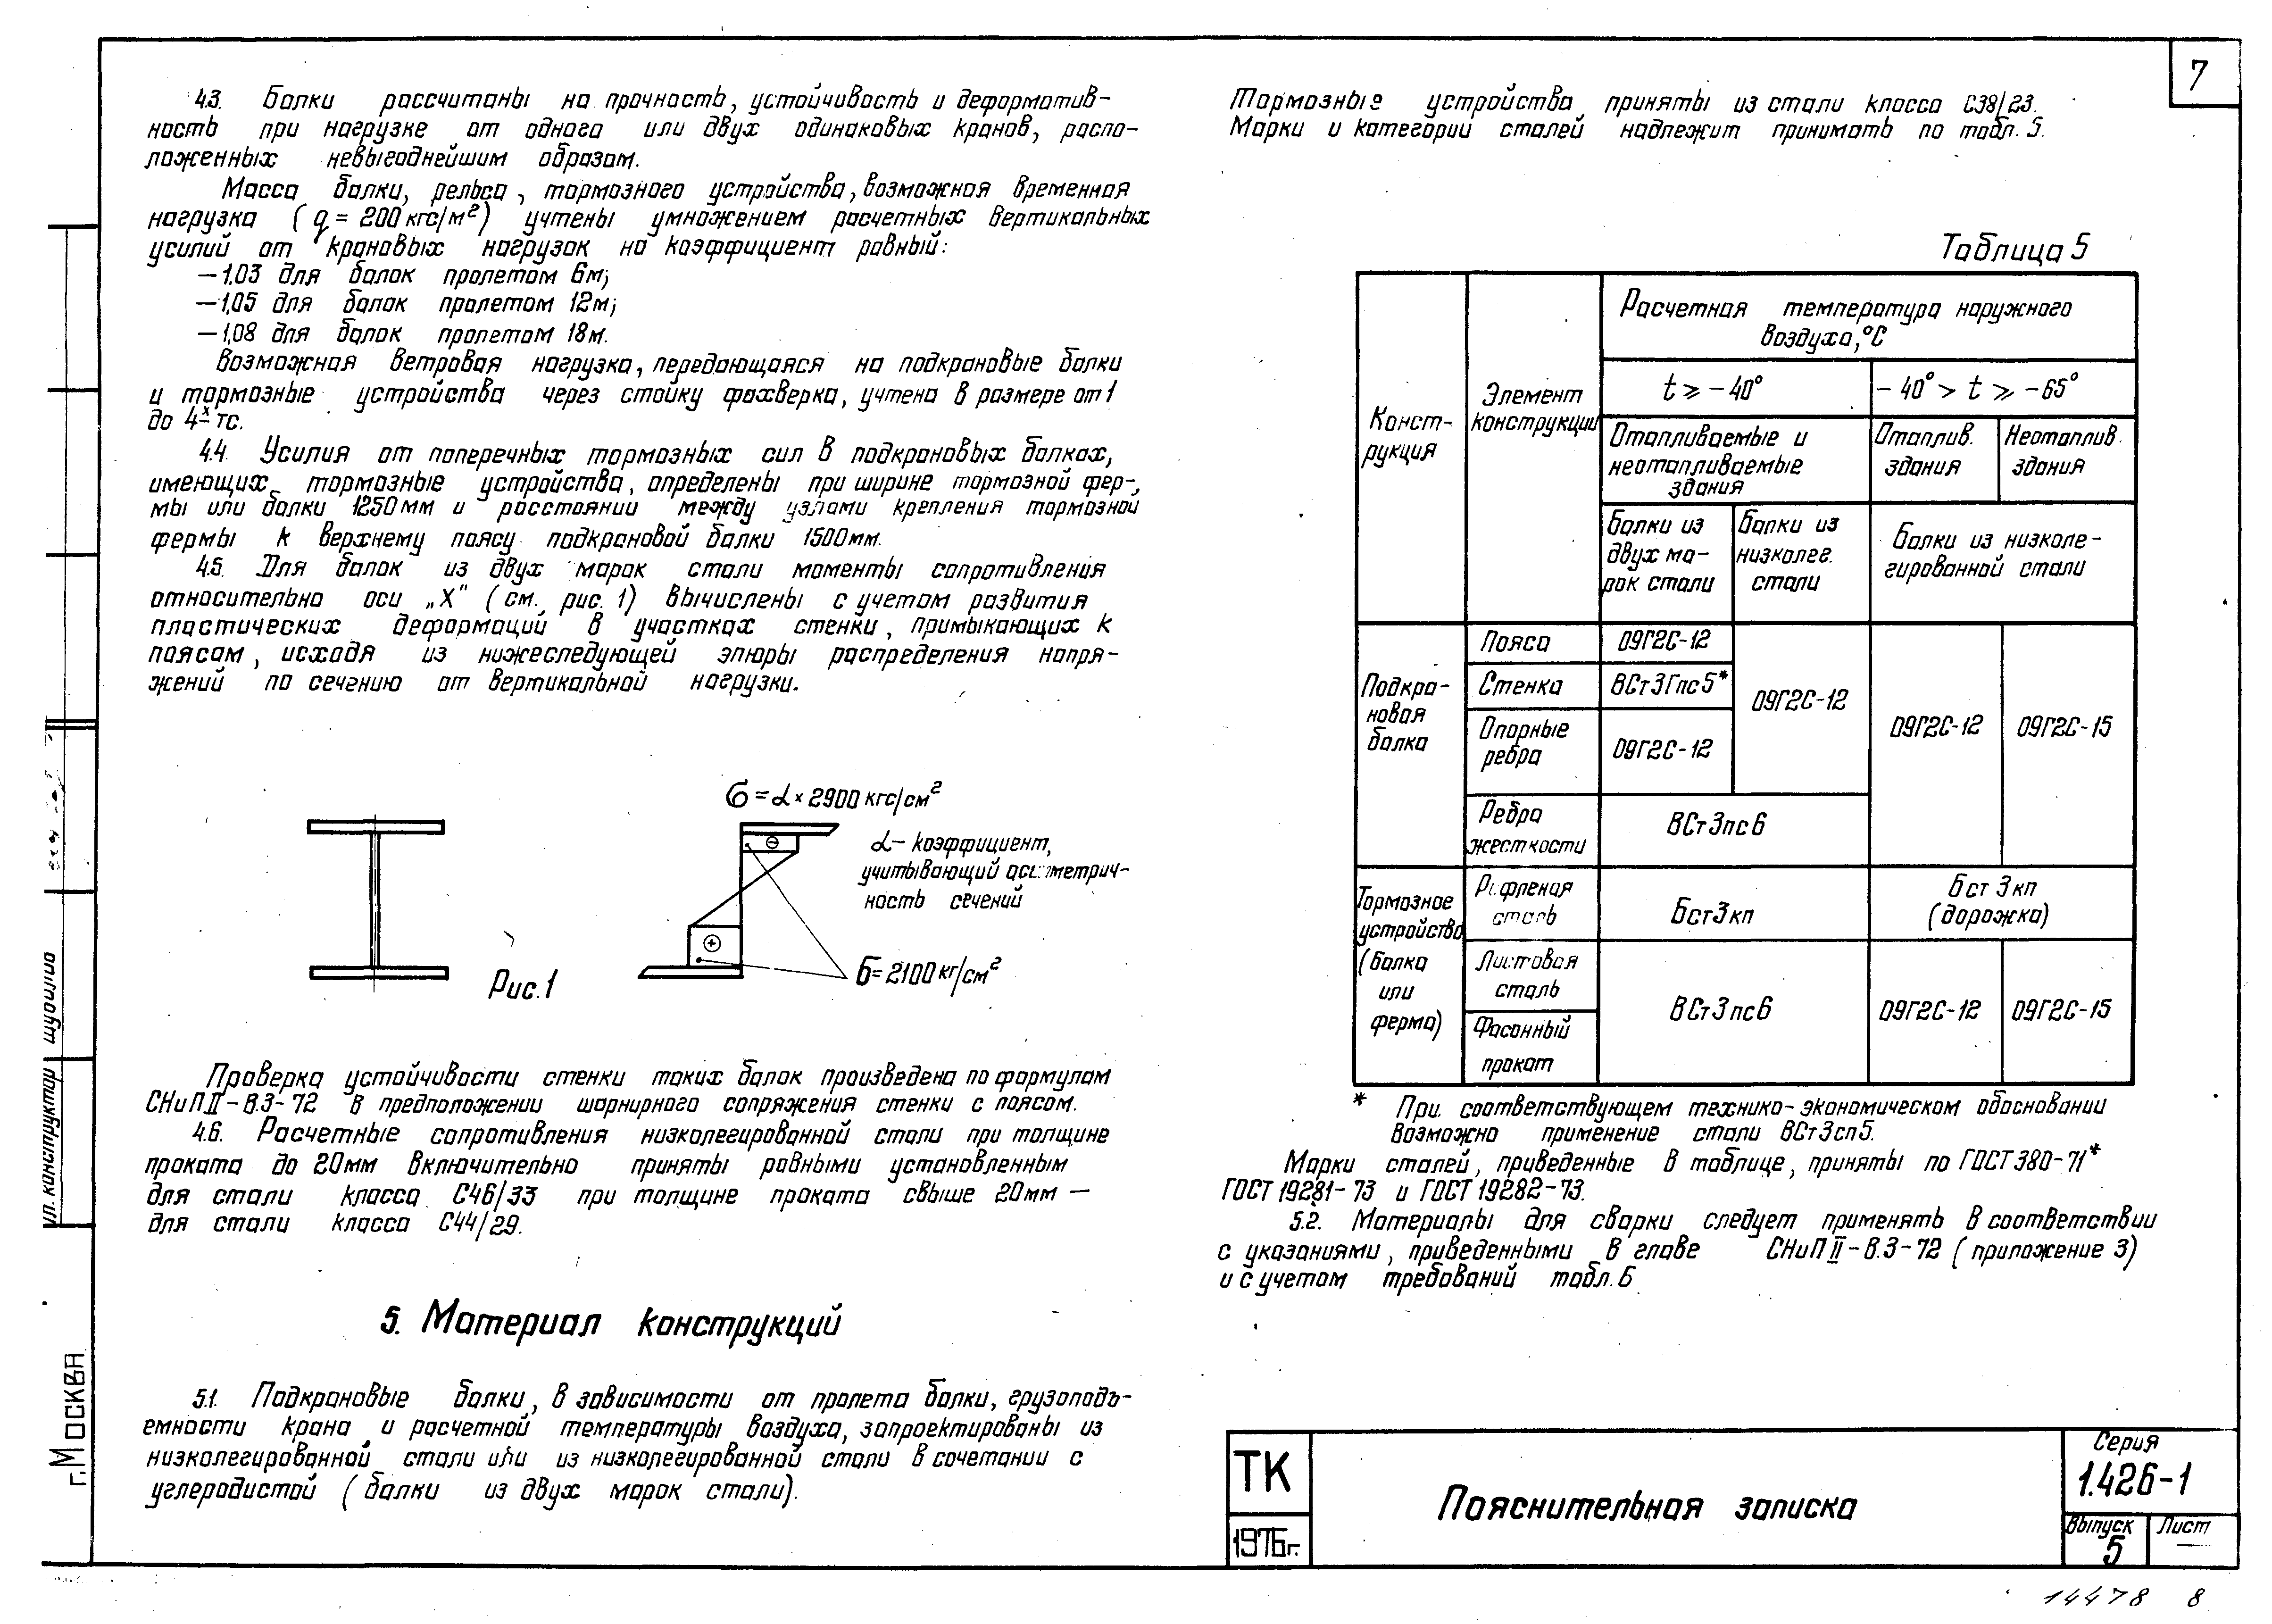 7
4.3. Балки рассчитаны на прочность, устойчивость и деформатив-
ность при нагрузке от одного или двух одинаковых кранов, распо-
ложенных невыгоднейшим образом.
Масса балки, рельса, тормозного устройства, возможная временная
нагрузка (q = 200 кгс/м²) учтены умножением расчетных вертикальных
усилий от крановых нагрузок на коэффициент равный:
— 1,03 для балок пролетом 6м;
— 1,05 для балок пролетом 12м;
— 1,08 для балок пролетом 18м.
Возможная ветровая нагрузка, передающаяся на подкрановые балки
и тормозные устройства через стойку фахверка, учтена в размере от 1
до 4х тс.
4.4. Усилия от поперечных тормозных сил в подкрановых балках,
имеющих тормозные устройства, определены при ширине тормозной фер-
мы или балки 1250мм и расстоянии между узлами крепления тормозной
фермы к верхнему поясу подкрановой балки 1500мм.
4.5. Для балок из двух марок стали моменты сопротивления
относительно оси „X" (см. рис. 1) вычислены с учетом развития
пластических деформаций в участках стенки, примыкающих к
поясам, исходя из нижеследующей эпюры распределения напря-
жений по сечению от вертикальной нагрузки.
σ = α × 2900 кгс/см²
α – коэффициент,
учитывающий асимметрич-
ность сечений
σ = 2100 кг/см²
Рис. 1
Проверка устойчивости стенки таких балок произведена по формулам
СНиП II-В.3-72 в предположении шарнирного сопряжения стенки с поясом.
4.6. Расчетные сопротивления низколегированной стали при толщине
проката до 20мм включительно приняты равными установленным
для стали класса С46/33 при толщине проката свыше 20мм —
для стали класса С44/29.
5. Материал конструкций
5.1. Подкрановые балки, в зависимости от пролета балки, грузоподъ-
емности крана и расчетной температуры воздуха, запроектированы из
низколегированной стали или из низколегированной стали в сочетании с
углеродистой (балки из двух марок стали).
Тормозные устройства приняты из стали класса С38/23.
Марки и категории сталей надлежит принимать по табл. 5.
Таблица 5
Конст-
рукция
Элемент
конструкции
Расчетная температура наружного
воздуха, °С
t ⩾ -40°
-40° > t ⩾ -65°
Отапливаемые и
неотапливаемые
здания
Отаплив.
здания
Неотаплив.
здания
Балки из
двух ма-
рок стали
Балки из
низколег.
стали
Балки из низколе-
гированной стали
Подкра-
новая
балка
Пояса
09Г2С-12
Стенка
ВСт3Гпс5*
Опорные
ребра
09Г2С-12
09Г2С-12
09Г2С-12
09Г2С-15
Ребра
жесткости
ВСт3пс6
Тормозное
устройство
(балка
или
ферма)
Рифленая
сталь
Бст3кп
Бст 3кп
(дорожка)
Листовая
сталь
Фасонный
прокат
ВСт3пс6
09Г2С-12
09Г2С-15
* При соответствующем технико-экономическом обосновании
возможно применение стали ВСт3сп5.
Марки сталей, приведенные в таблице, приняты по ГОСТ 380-71*
ГОСТ 19281-73 и ГОСТ 19282-73.
5.2. Материалы для сварки следует применять в соответствии
с указаниями, приведенными в главе СНиП II-В.3-72 (приложение 3)
и с учетом требований табл. 6
ТК
1976г.
Пояснительная записка
Серия
1.426-1
Выпуск
5
Лист
—
14478 8
г. Москва
конструктор